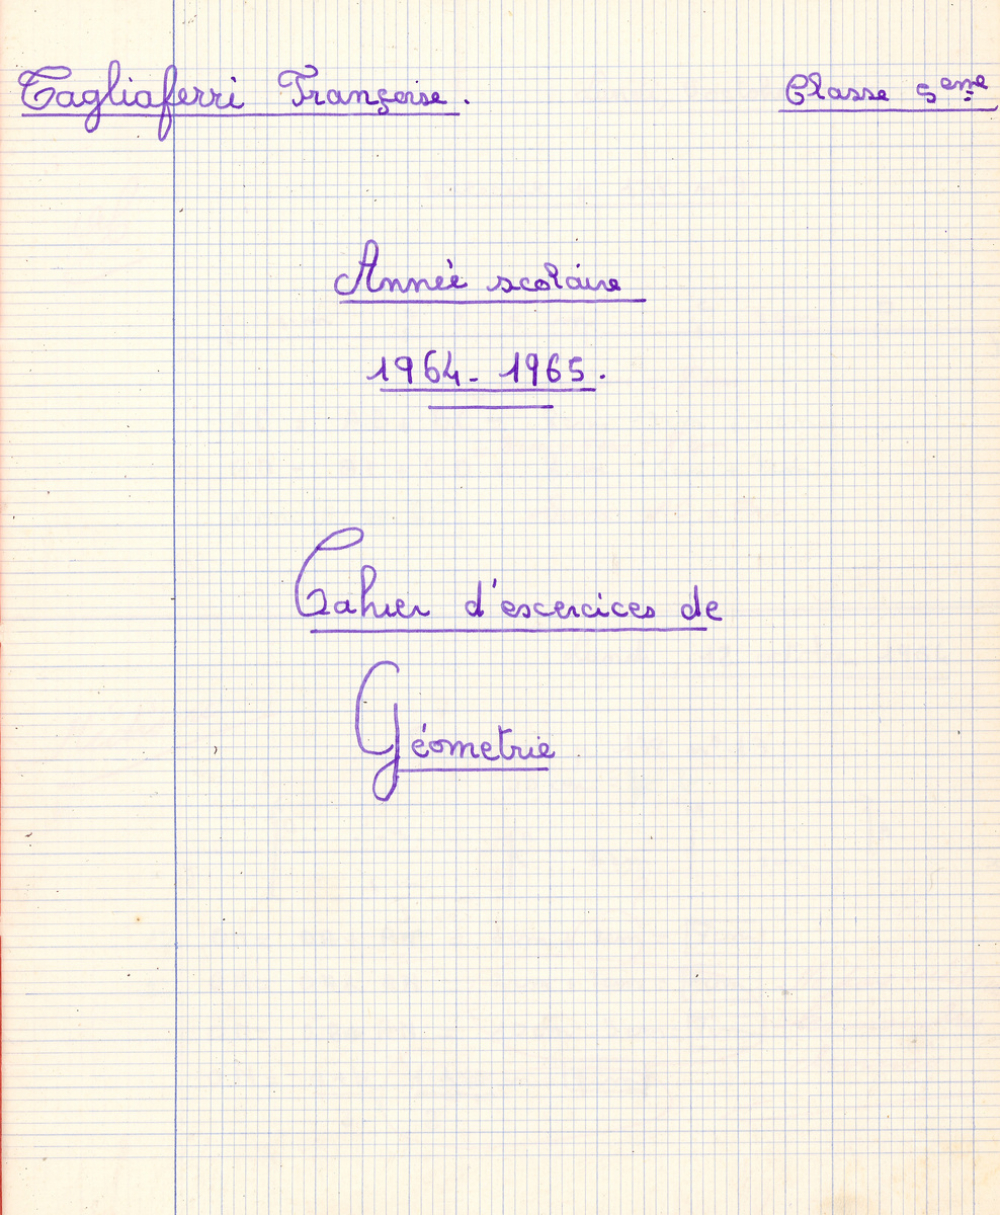 Tagliaferri Françoise. Classe 5eme
Année scolaire
1964-1965.
Cahier d'exercices de
Géometrie